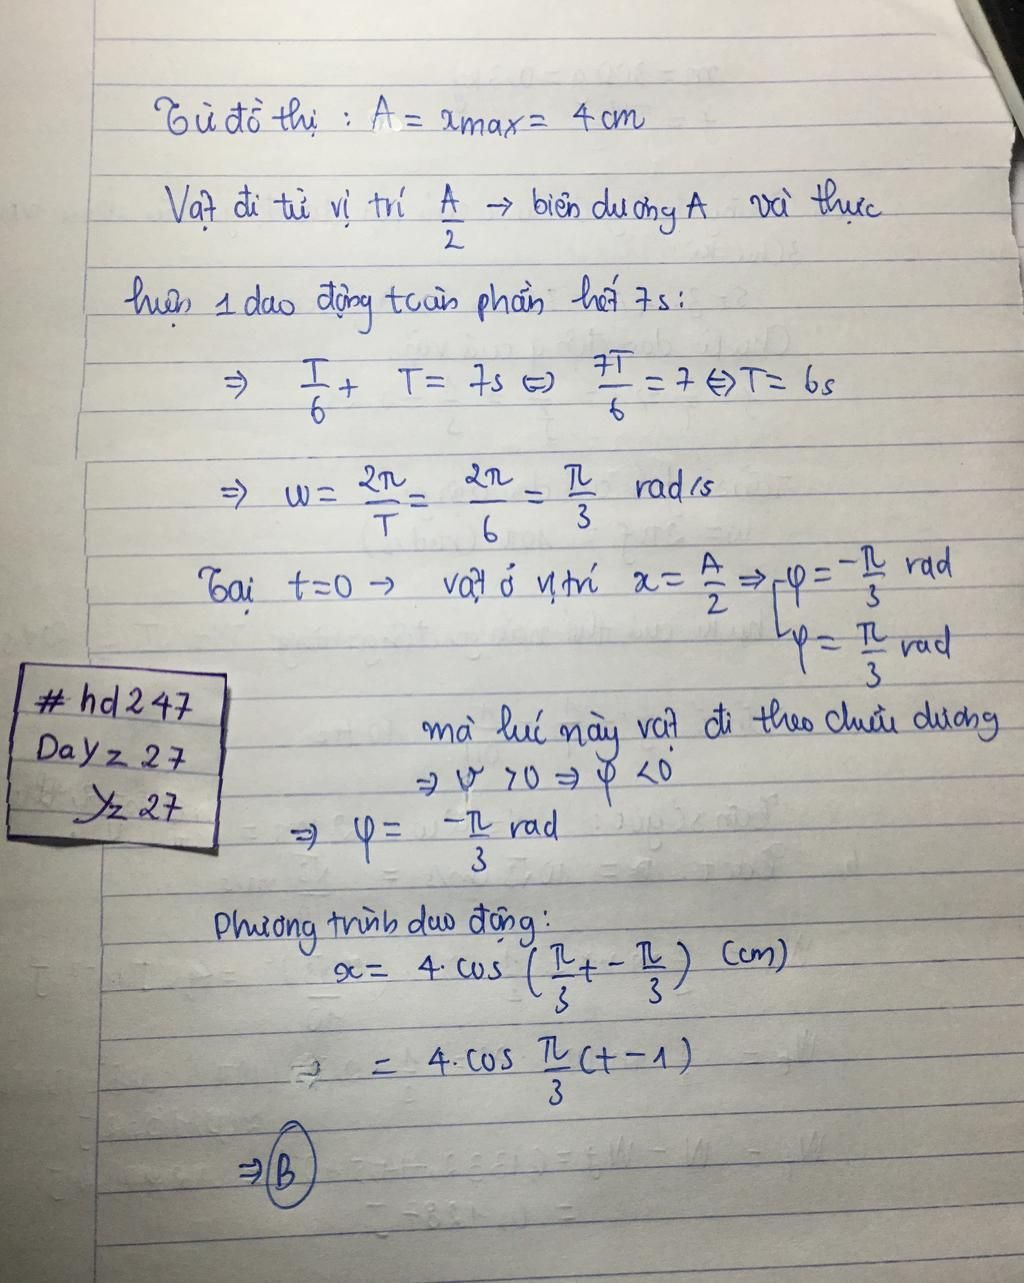 Từ đồ thị : A = xmax = 4 cm
Vật đi từ vị trí A/2 → biên dương A và thực
hiện 1 dao động toàn phần hết 7s :
⇒ T/6 + T = 7s ⇔ 7T/6 = 7 ⇔ T = 6s
⇒ w = 2π/T = 2π/6 = π/3 rad/s
Tại t=0 → vật ở vị trí x = A/2 ⇒ φ = -π/3 rad
φ = π/3 rad
mà lúc này vật đi theo chiều dương
⇒ v > 0 ⇒ φ < 0
⇒ φ = -π/3 rad
# hd247
Dayz 27
Yz 27
Phương trình dao động :
x = 4. cos (π/3 t - π/3) (cm)
⇒ = 4. cos π/3 (t - 1)
⇒ B